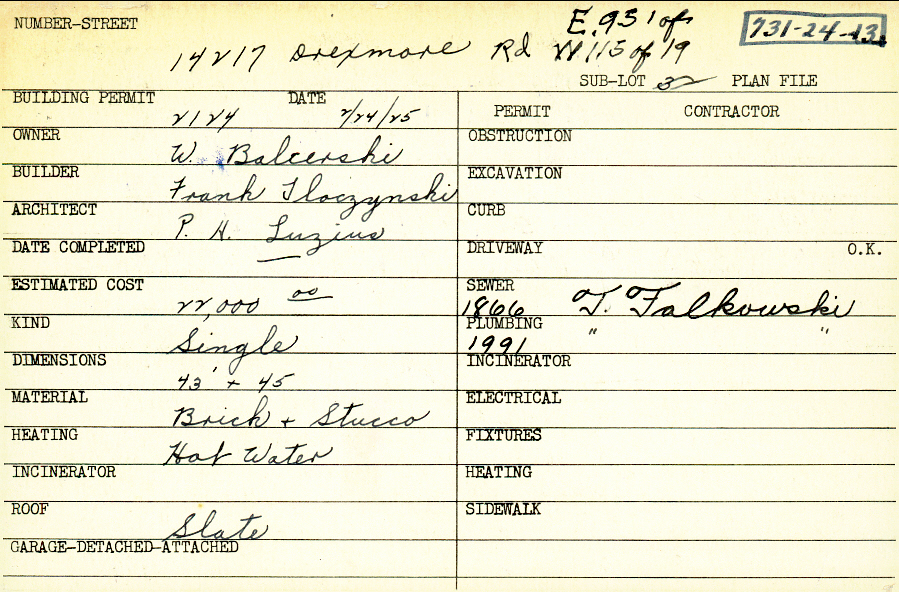 NUMBER-STREET
E. 93' of
731-24-13
14217 Drexmore Rd W 115 of 19
SUB-LOT 32 PLAN FILE
BUILDING PERMIT DATE
2124 2/24/25
PERMIT CONTRACTOR
OWNER
W. Balcerski
BUILDER
Frank Tloczynski
ARCHITECT
P. H. Luzius
DATE COMPLETED
ESTIMATED COST
22,000 00
KIND
Single
DIMENSIONS
43' + 45
MATERIAL
Brick + Stucco
HEATING
Hot Water
INCINERATOR
ROOF
Slate
GARAGE-DETACHED-ATTACHED
OBSTRUCTION
EXCAVATION
CURB
DRIVEWAY O.K.
SEWER
1866 T. Falkowski
PLUMBING " "
1991
INCINERATOR
ELECTRICAL
FIXTURES
HEATING
SIDEWALK